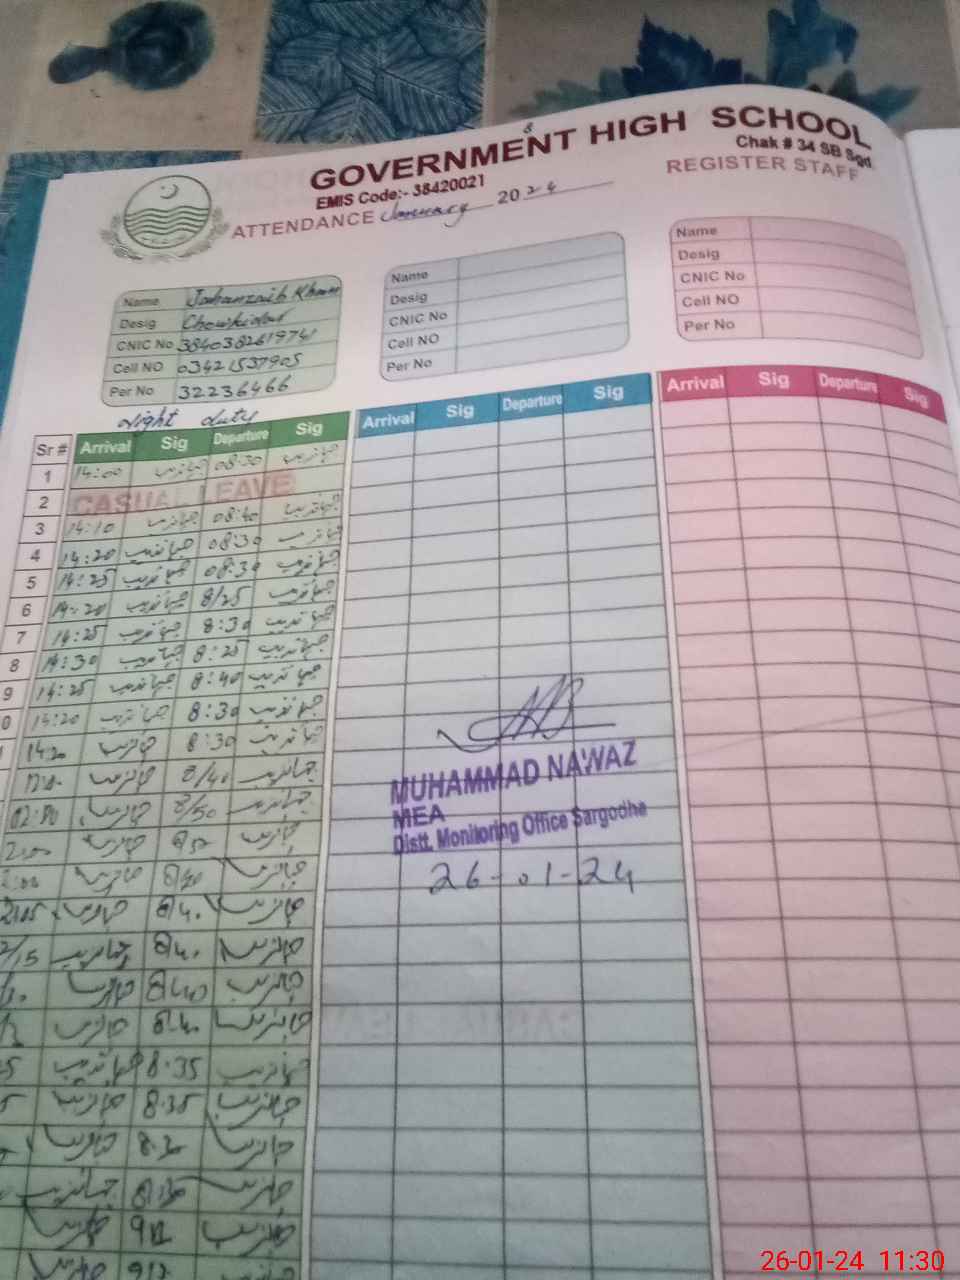 GOVERNMENT HIGH SCHOOL
Chak # 34 SB Sgd.
EMIS Code:- 38420021
REGISTER STAFF
ATTENDANCE January 2024
Name Jahanzaib Khan
Desig Chowkidar
CNIC No 3840382619741
Cell NO 03421537905
Per No 32236466
Name
Desig
CNIC No
Cell NO
Per No
Name
Desig
CNIC No
Cell NO
Per No
Night duty
Sr # Arrival Sig Departure Sig Arrival Sig Departure Sig Arrival Sig Departure Sig
1 14:00 جہانزیب 08:30 جہانزیب
2 CASUAL LEAVE
3 14:10 جہانزیب 08:40 جہانزیب
4 14:20 جہانزیب 08:30 جہانزیب
5 14:25 جہانزیب 08:30 جہانزیب
6 14:20 جہانزیب 8/25 جہانزیب
7 14:25 جہانزیب 8:30 جہانزیب
8 14:30 جہانزیب 8:25 جہانزیب
9 14:25 جہانزیب 8:40 جہانزیب
0 14:20 جہانزیب 8:30 جہانزیب
14:20 جہانزیب 8:30 جہانزیب
جہانزیب 8/40 جہانزیب
جہانزیب 8/50 جہانزیب
جہانزیب جہانزیب
جہانزیب جہانزیب
جہانزیب 8/4. جہانزیب
جہانزیب 8/4. جہانزیب
جہانزیب 8/40 جہانزیب
جہانزیب 8.40 جہانزیب
جہانزیب 8.35 جہانزیب
جہانزیب 8.35 جہانزیب
جہانزیب جہانزیب
جہانزیب جہانزیب
جہانزیب جہانزیب
جہانزیب
MUHAMMAD NAWAZ
MEA
Distt. Monitoring Office Sargodha
26-01-24
26-01-24 11:30